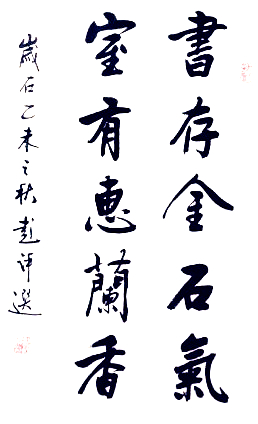 書存金石氣
室有惠蘭香
歲在乙未之秋彭評選